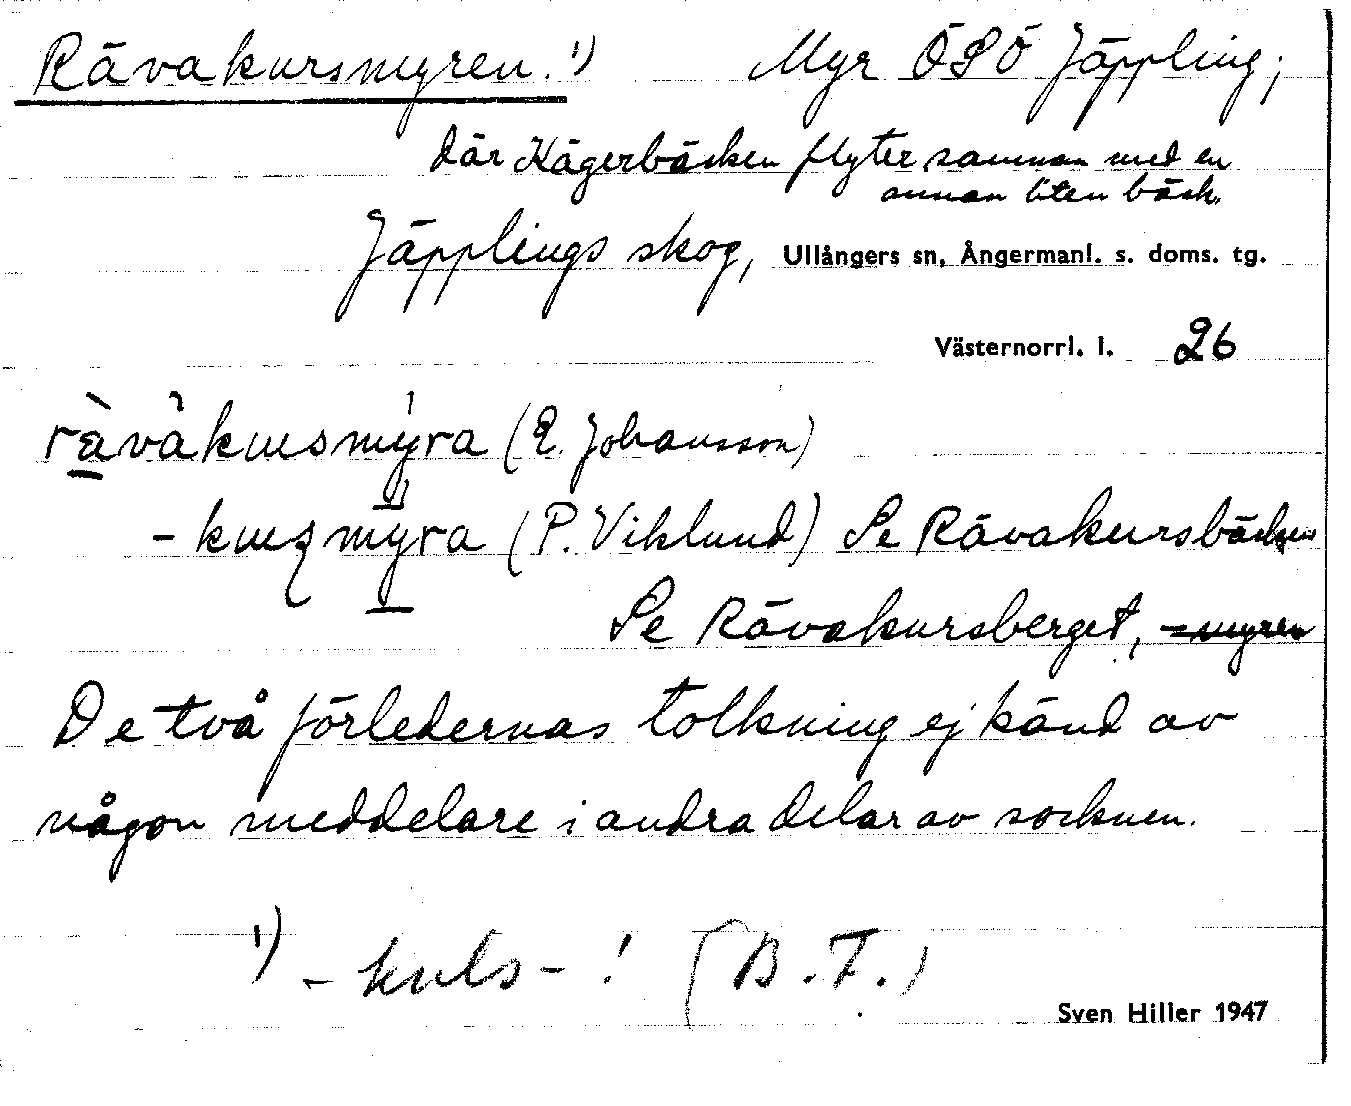 Rävakursmyren. 1) Myr ÖSÖ Jäppling;
där Kägerbäcken flyter samman med en
annan liten bäck.
Jäpplings skog, Ullångers sn, Ångermanl. s. doms. tg.
Västernorrl. l. 26
(E. Johansson)
(P. Viklund) Se Rävakursbäcken
Se Rävakursberget, -myren
De två förledernas tolkning ej känd av
någon meddelare i andra delar av socknen.
1) -kuls-! (B.T.)
Sven Hiller 1947